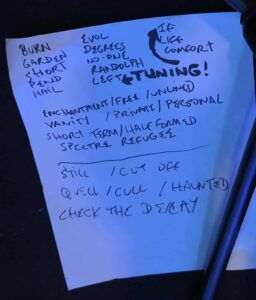 BURN
GARDEN
SHORT
PEND
HAIL
EVOL
DEGREES
NO-ONE
RANDOLPH
LEFT
TUNING!
IF
LIFE
COMFORT
ENCHANTMENT/FREE/UNLINED
VANITY / PRIVATE / PERSONAL
SHORT TERM/HALF FORMED
SPECTRE REFUGEE
STILL / CUT OFF
QUELL / CULL / HAUNTED
CHECK THE DECAY